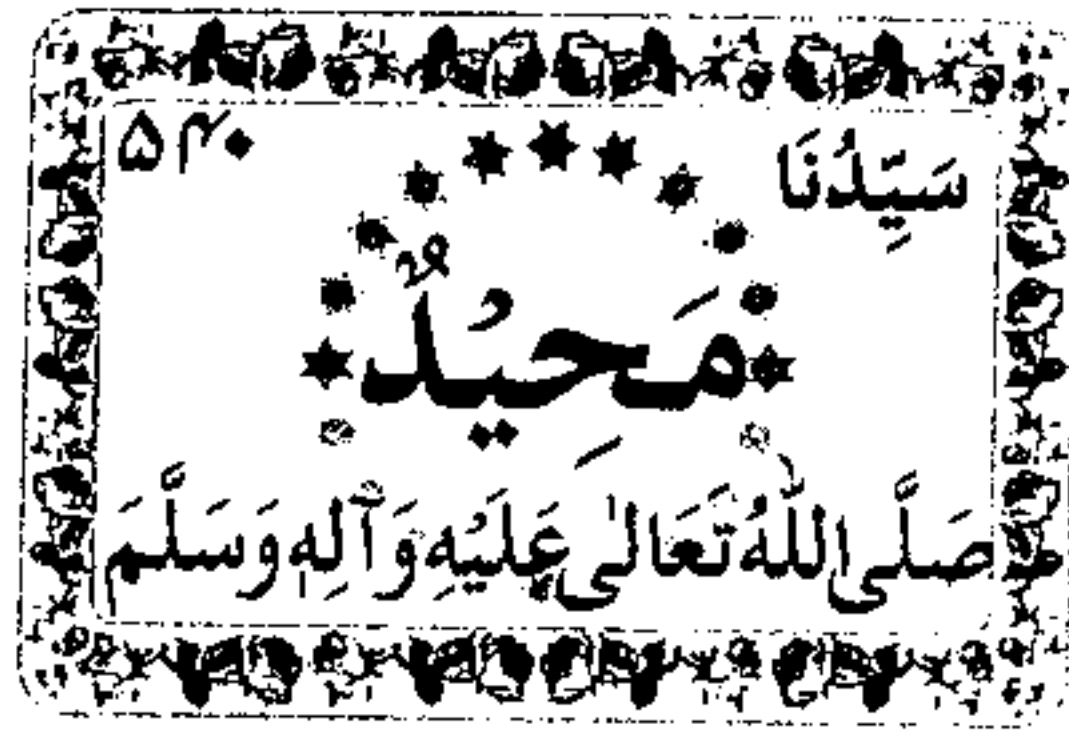 سَيِّدُنَا ۵۴۰
مَحِيْدٌ
صَلَّى اللّٰهُ تَعَالٰى عَلَيْهِ وَآلِهٖ وَسَلَّمَ